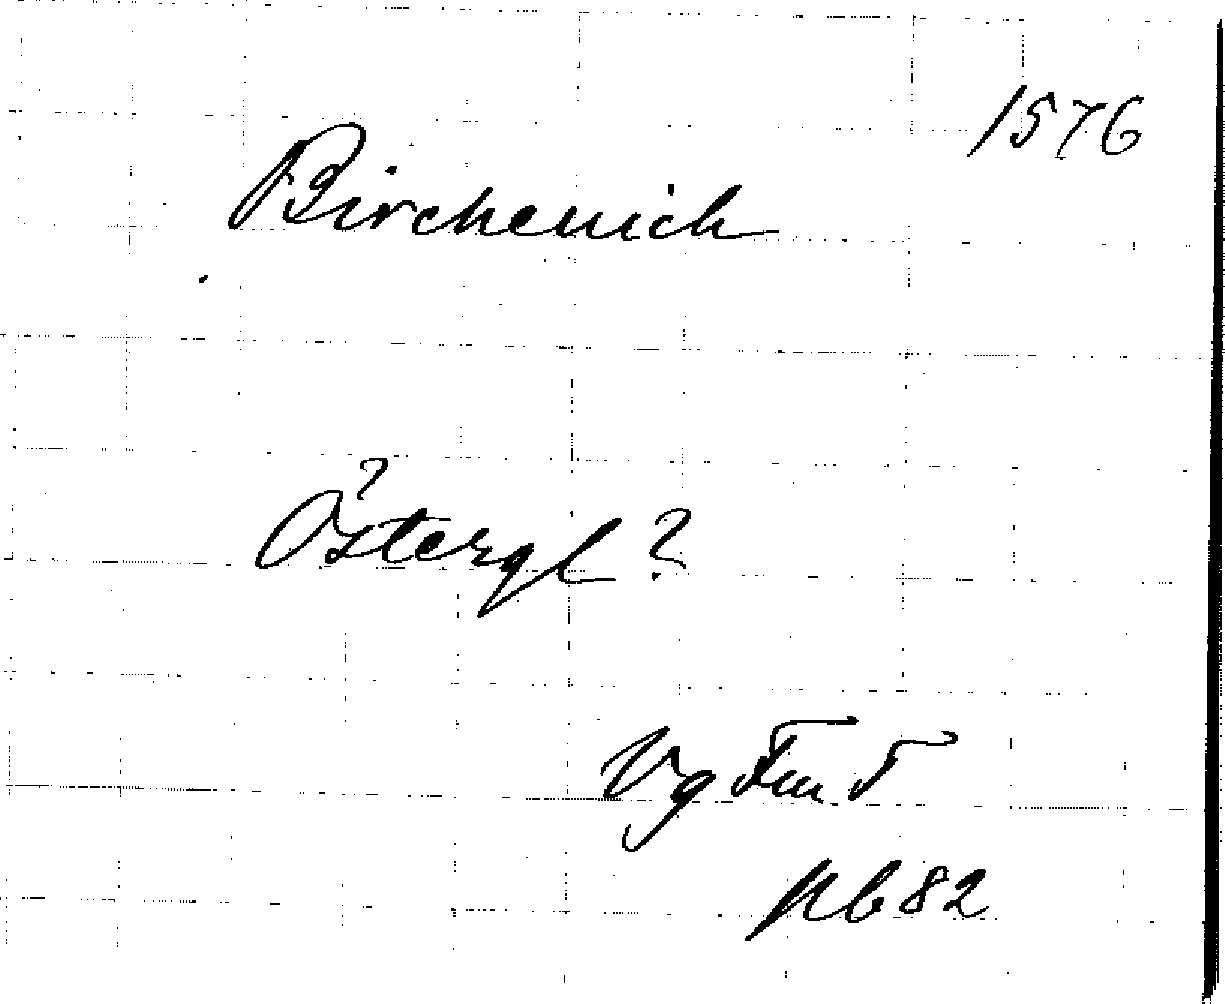 1576
Birchenich
?
Östergl ?
Vg Fm T
Nb 82